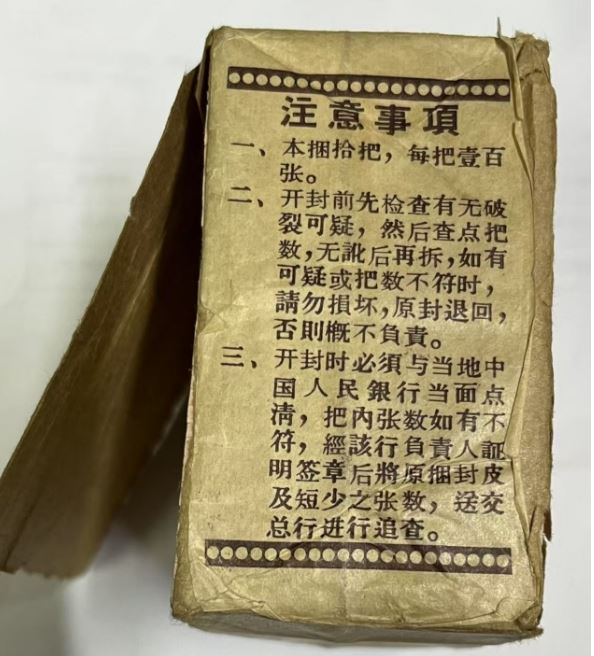 注意事項
一、本捆拾把，每把壹百
张。
二、开封前先检查有无破
裂可疑，然后查点把
数，无訛后再拆，如有
可疑或把数不符时，
請勿損坏，原封退回，
否則概不負責。
三、开封时必須与当地中
国人民銀行当面点
清，把內张数如有不
符，經該行負責人証
明签章后將原捆封皮
及短少之张数，送交
总行进行追查。